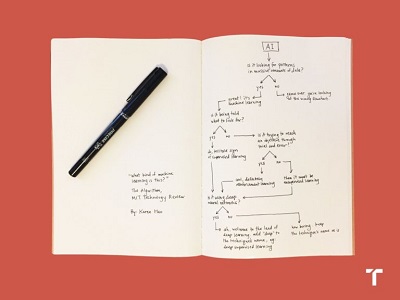 "What kind of machine
learning is this?"
The Algorithm,
MIT Technology Review
By: Karen Hao
AI
Is it looking for patterns
in massive amounts of data?
yes
no
great! it's
machine learning
Is it being told
what to look for?
yes
no
Is it trying to reach
an objective through
trial and error?
of supervised learning
yes
no
reinforcement learning
then it must be
unsupervised learning
Is it using deep
neural networks?
yes
no
ah, welcome to the land of
deep learning. add "deep" to
the technique's name, eg:
deep supervised learning
the technique's name as is